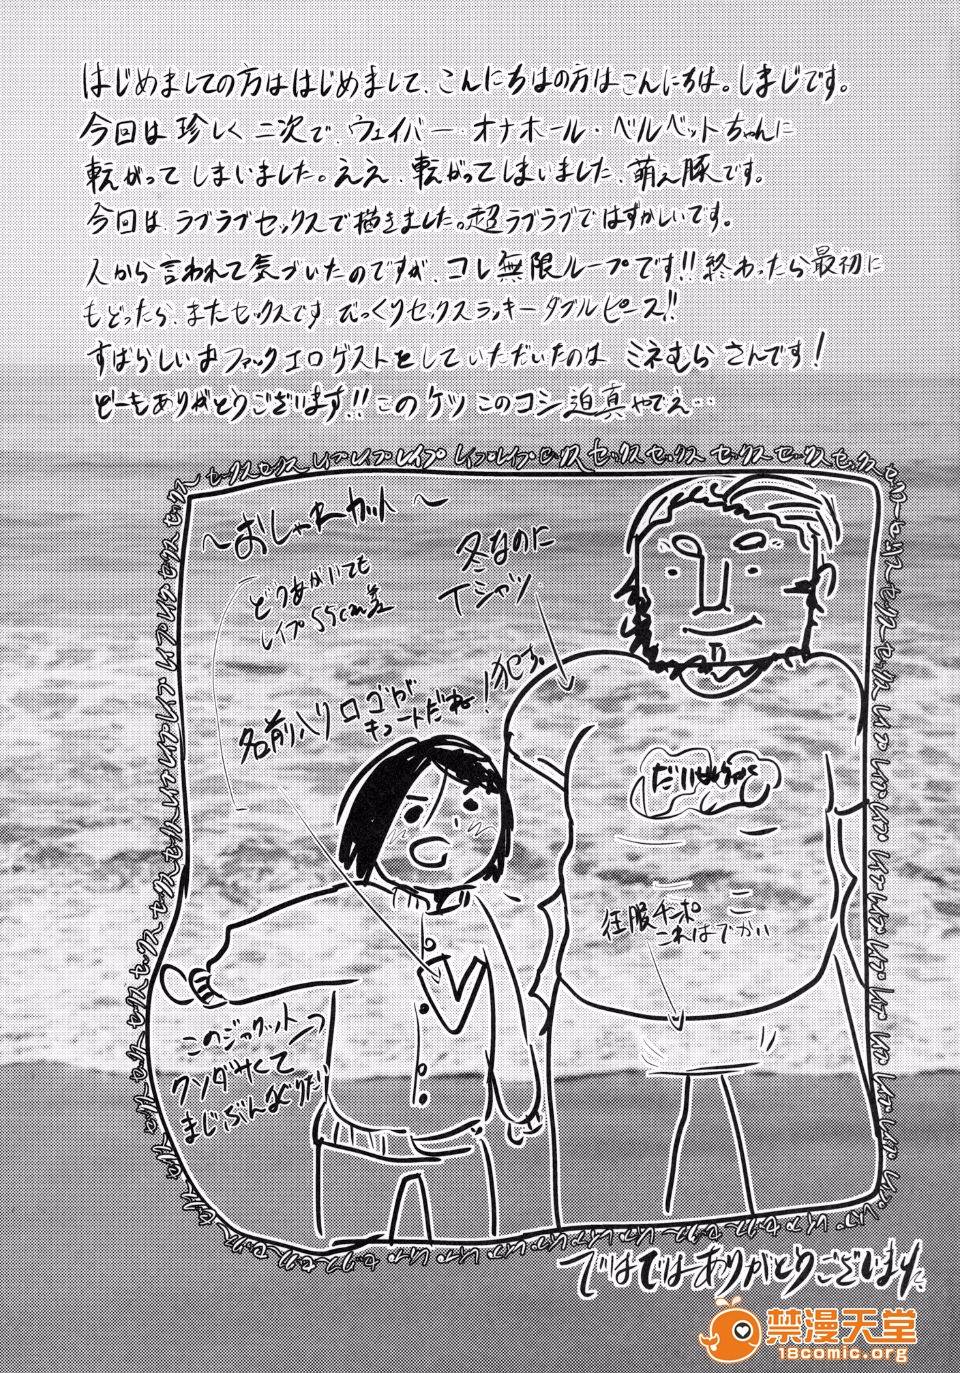 はじめましての方ははじめまして、こんにちはの方はこんにちは。しまじです。
今回は珍しく二次で、ウェイバー・オナホール・ベルベットちゃんに
転がってしまいました。ええ、転がってしまいました、萌え豚です。
今回は、ラブラブセックスで描きました。超ラブラブではずかしいです。
人から言われて気づいたのですが、コレ無限ループです!!終わったら最初に
もどったら、またセックスです。びっくりセックスラッキーダブルピース!!
すばらしいおファックエロゲストをしていただいたのは ミネむらさんです!
どーもありがとうございます!!このケツこのコシ迫真やでえ…
〜おしゃれカット〜
冬なのに
Tシャツ
どうあがいても
レイプ 55cm差
名前入りロゴが
キュートだね!犯す
征服チンポ
これはでかい
このジャケット
クソダサくて
まじぶんなぐりたい
ではではありがとうございました
禁漫天堂
18comic.org